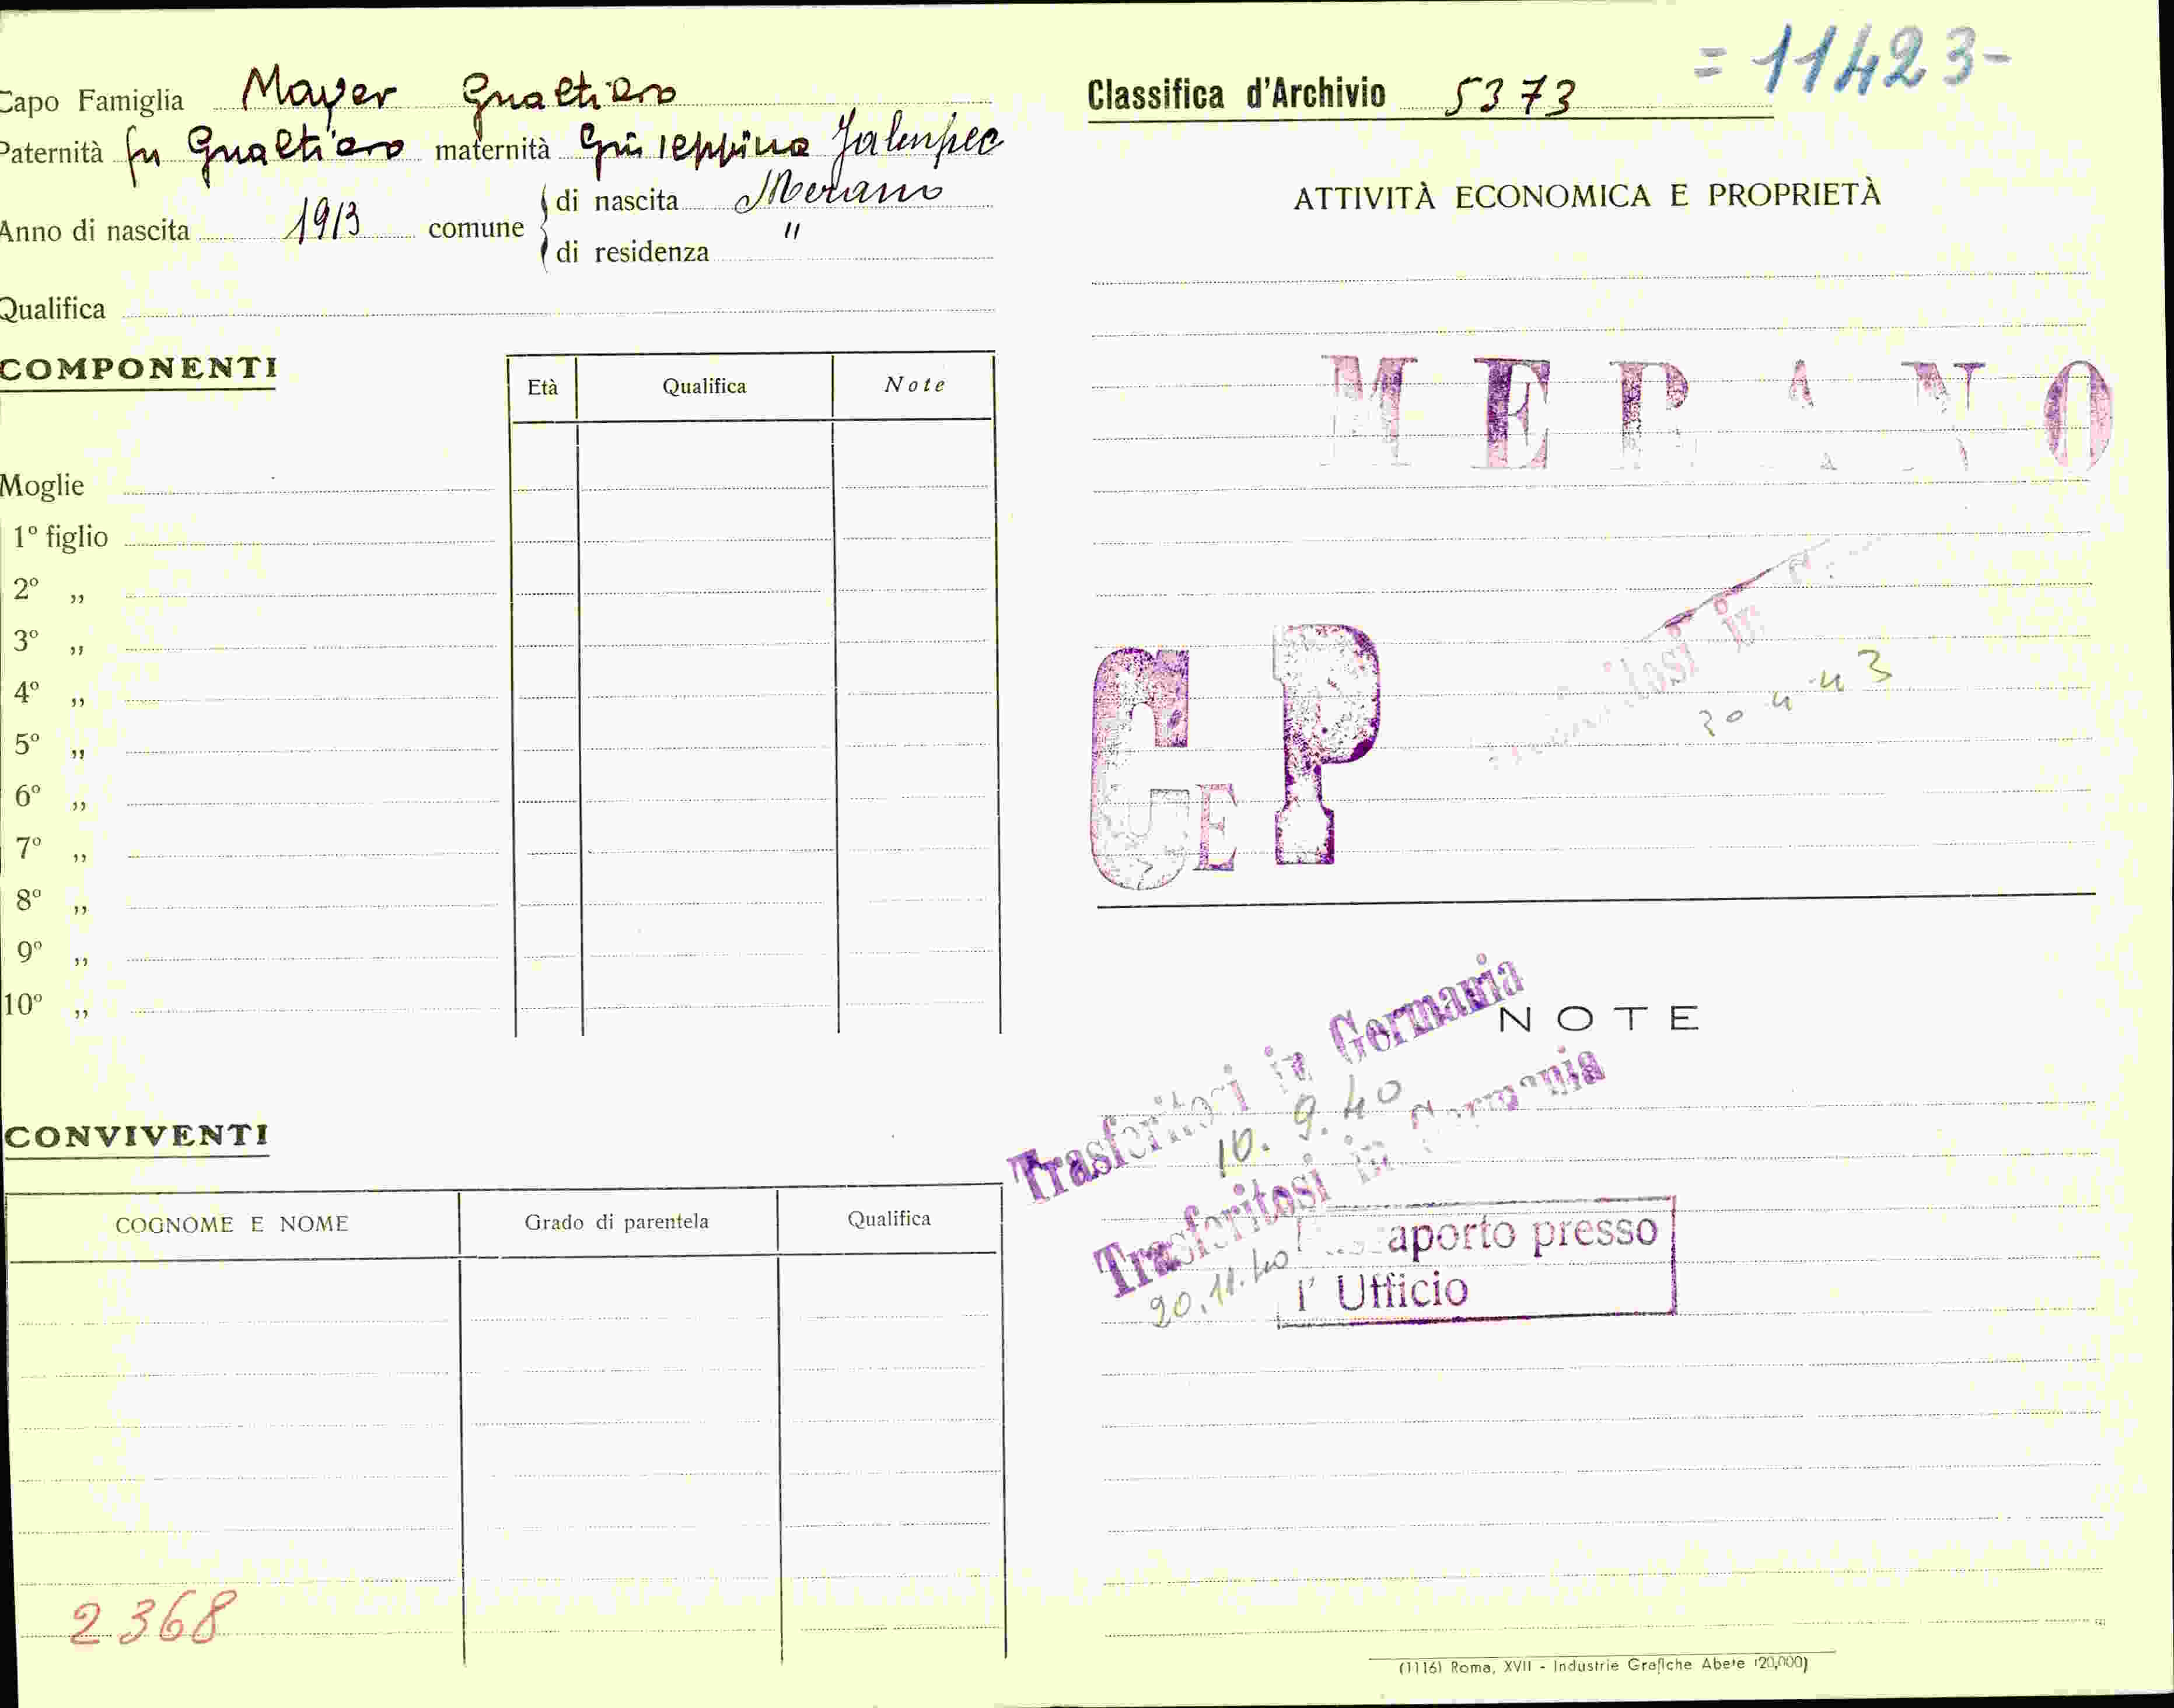 Capo Famiglia Mayer Gualtiero
Paternità fu Gualtiero maternità Giuseppina
Anno di nascita 1913 comune di nascita Merano
di residenza "
Qualifica
COMPONENTI
Età Qualifica Note
Moglie
1º figlio
2º „
3º „
4º „
5º „
6º „
7º „
8º „
9º „
10º „
CONVIVENTI
COGNOME E NOME Grado di parentela Qualifica
2368
= 11423-
Classifica d'Archivio 5373
ATTIVITÀ ECONOMICA E PROPRIETÀ
MERANO
30 4 43
C E P
NOTE
Trasferitosi in Germania
10. 9. 40
Trasferitosi in Germania
20. 11. 40
aporto presso
l' Ufficio
(1116) Roma, XVII - Industrie Grafiche Abete (20,000)